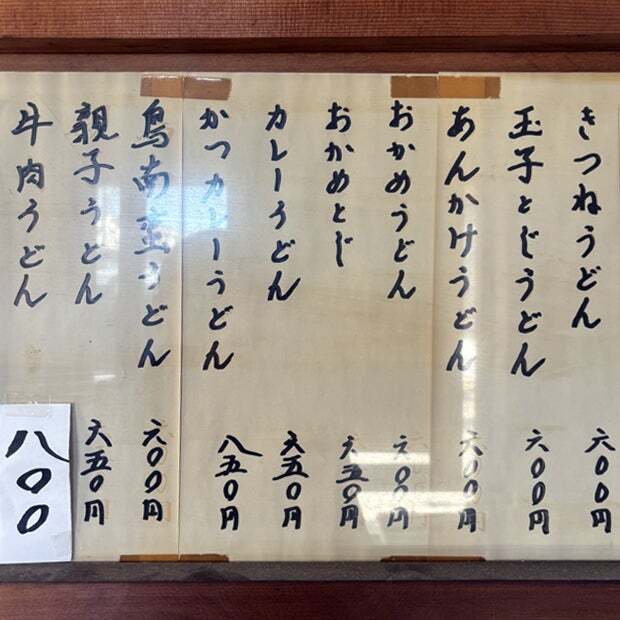 きつねうどん 六〇〇円
玉子とじうどん 六〇〇円
あんかけうどん 六〇〇円
おかめうどん 六〇〇円
おかめとじ 六五〇円
カレーうどん 六五〇円
かつカレーうどん 八五〇円
鳥南蛮うどん 六〇〇円
親子うどん 六五〇円
牛肉うどん 八〇〇